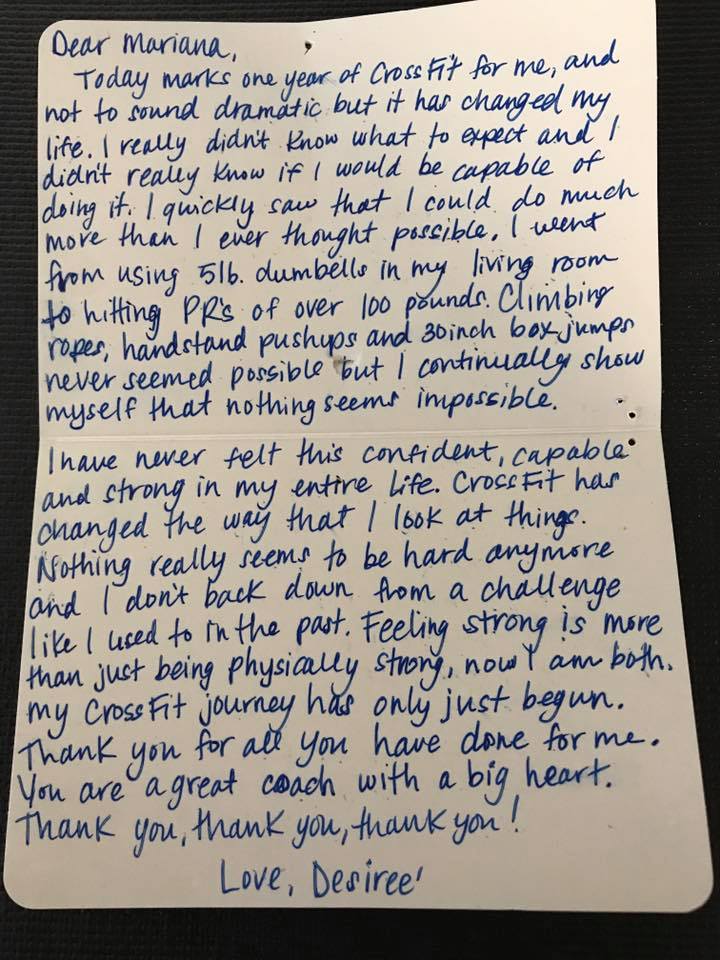 Dear Mariana,
Today marks one year of CrossFit for me, and
not to sound dramatic but it has changed my
life. I really didn't know what to expect and I
didn't really know if I would be capable of
doing it. I quickly saw that I could do much
more than I ever thought possible. I went
from using 5lb. dumbells in my living room
to hitting PR's of over 100 pounds. Climbing
ropes, handstand pushups and 30inch box jumps
never seemed possible but I continually show
myself that nothing seems impossible.
I have never felt this confident, capable
and strong in my entire life. CrossFit has
changed the way that I look at things.
Nothing really seems to be hard anymore
and I don't back down from a challenge
like I used to in the past. Feeling strong is more
than just being physically strong, now I am both.
My CrossFit journey has only just begun.
Thank you for all you have done for me.
You are a great coach with a big heart.
Thank you, thank you, thank you!
Love, Desiree'